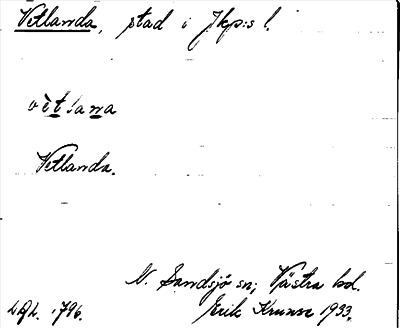 Vetlanda, stad i Jkp:s l.
vètlana
Vetlanda.
N. Sandsjö sn; Västra hd.
Erik Krusse 1933.
1796.